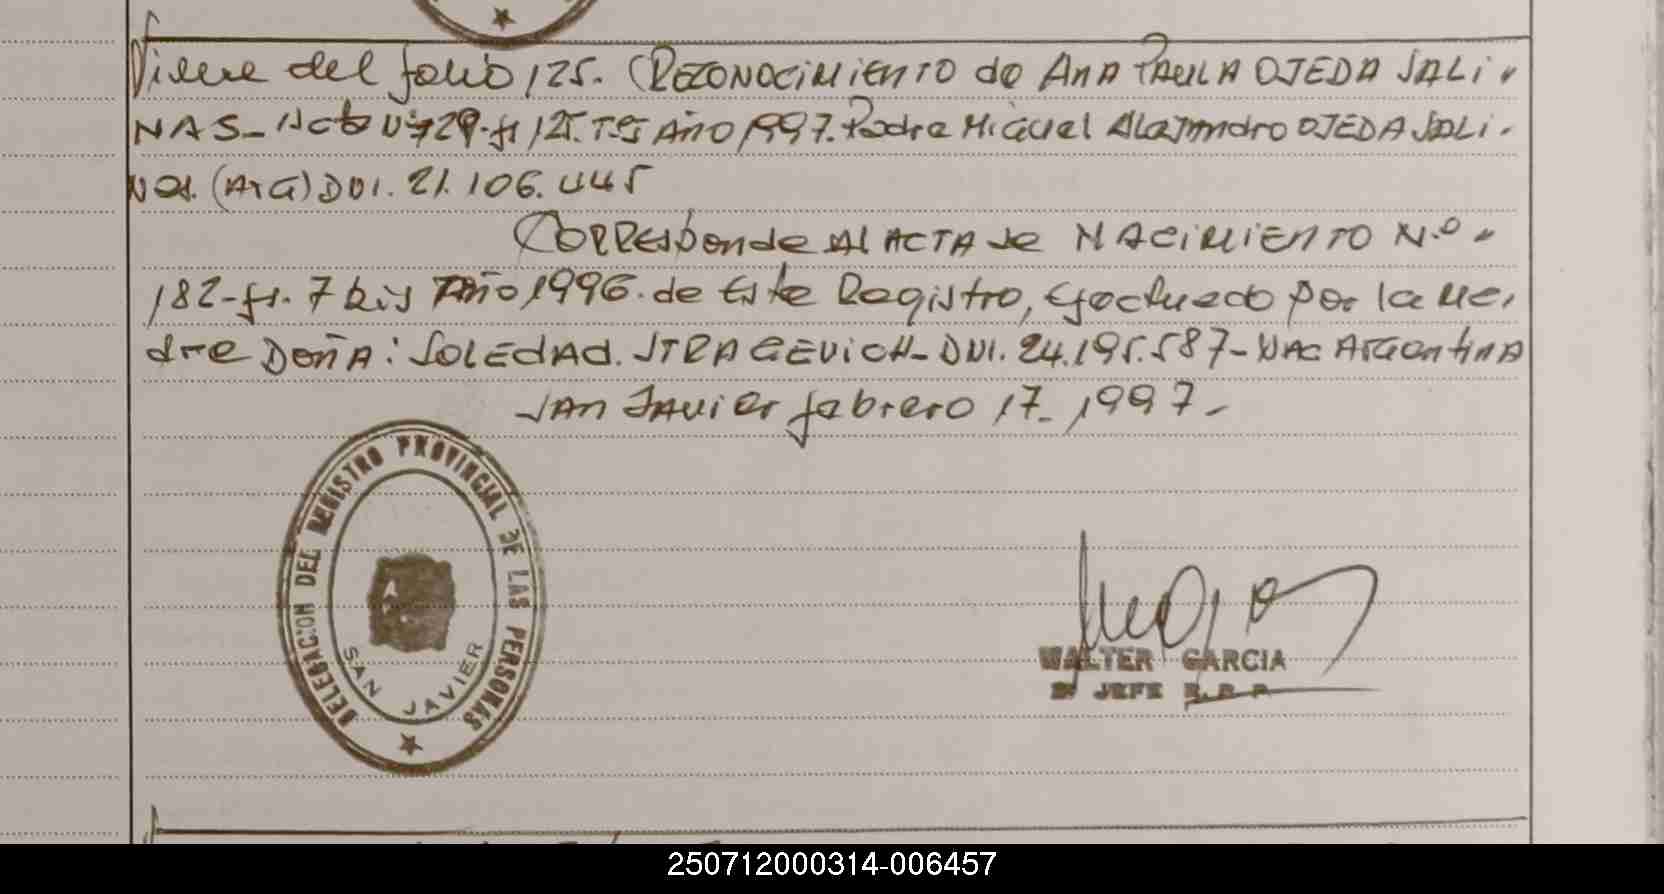 Viene del folio 125. (RECONOCIMIENTO de ANA PAULA OJEDA SALI-
NAS_ Acta Nº 29-fs 125. Año 1997. Padre Miguel Alejandro OJEDA SALI-
NAS. (Arg) DNI. 21.106.445
Corresponde Al ACTA de NACIMIENTO N.º
182-fs. 7 bis Año 1996. de Este Registro, efectuado por la Ma-
dre DOÑA: SOLEDAD. STRAGEVICH- DNI. 24.195.587- NAC Argentina
SAN JAVIER febrero 17_ 1997_
DELEGACION DEL REGISTRO PROVINCIAL DE LAS PERSONAS
SAN JAVIER
WALTER GARCIA
JEFE R.P.P.
250712000314-006457